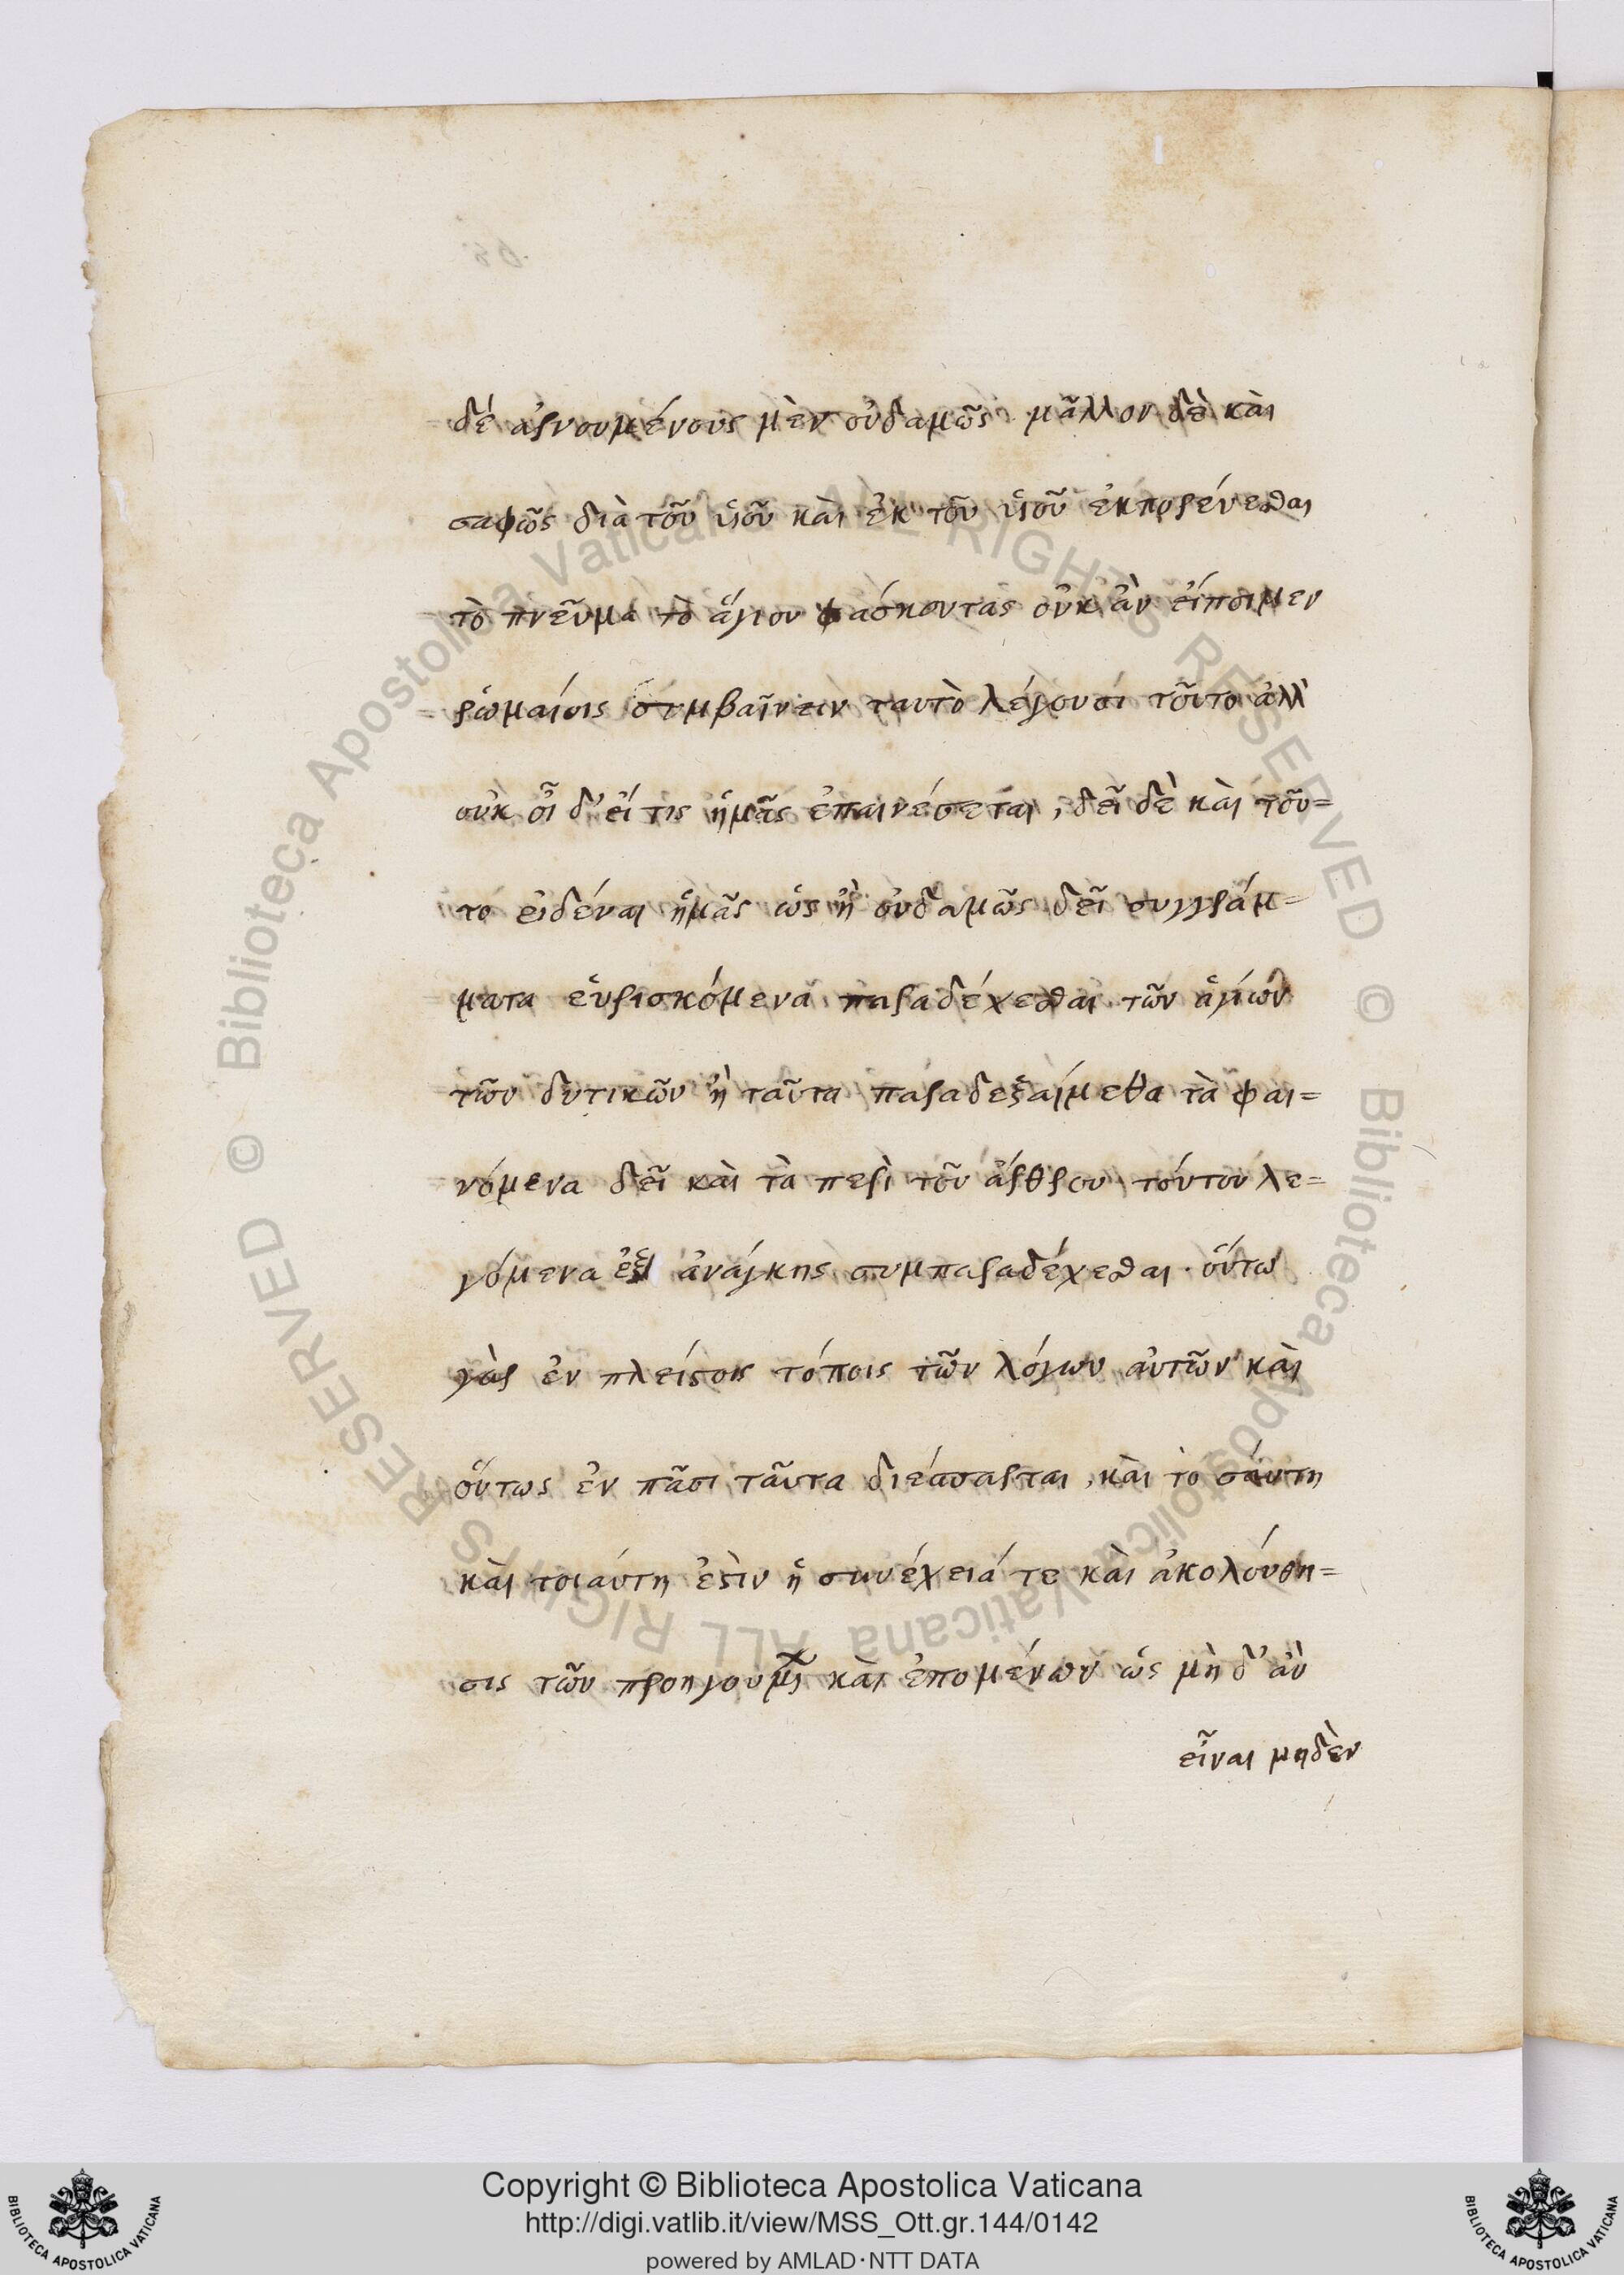 δέ ἀρνουμένους μὲν οὐδαμῶς· μᾶλλον δὲ καὶ
σαφῶς διὰ τοῦ υἱοῦ καὶ ἐκ τοῦ υἱοῦ ἐκπορεύεσθαι
τὸ πνεῦμα τὸ ἅγιον φάσκοντας οὐκ ἂν εἴποιμεν
ῥωμαίοις συμβαῖνειν ταυτὸ λέγουσι τοῦτο ἀλλ'
οὐκ οἶδ' εἴ τις ἡμᾶς ἐπαινέσεται, δεῖ δὲ καὶ τοῦ=
το εἰδέναι ἡμᾶς ὡς ἢ οὐδαμῶς δεῖ συγγράμ=
ματα εὑρισκόμενα παραδέχεσθαι τῶν ἁγίων
τῶν δυτικῶν ἢ ταῦτα παραδεξαίμεθα τὰ φαι=
νόμενα δεῖ καὶ τὰ περὶ τοῦ ἄρθρου τούτου λε=
γόμενα ἐξ ἀνάγκης συμπαραδέχεσθαι· οὕτω
γὰρ ἐν πλείστοις τόποις τῶν λόγων αὐτῶν καὶ
οὕτως ἐν πᾶσι ταῦτα διέσπαρται, καὶ τοσάυτη
καὶ τοιάυτη ἐστὶν ἡ συνέχειά τε καὶ ἀκολόυθη=
σις τῶν προηγουμ καὶ ἑπομένων ὡς μὴ δ' ἂν
εἶναι μηδὲν
Copyright © Biblioteca Apostolica Vaticana
http://digi.vatlib.it/view/MSS_Ott.gr.144/0142
powered by AMLAD·NTT DATA
BIBLIOTECA APOSTOLICA VATICANA
BIBLIOTECA APOSTOLICA VATICANA
© Biblioteca Apostolica Vaticana ALL RIGHTS RESERVED
© Biblioteca Apostolica Vaticana ALL RIGHTS RESERVED